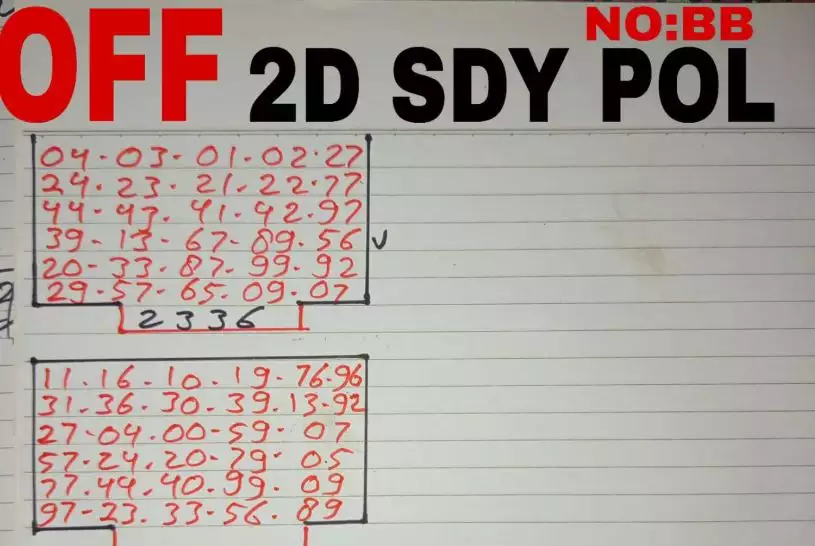 NO:BB
OFF 2D SDY POL
04-03-01-02.27
24.23.21.22.77
44-43.41.42.97
39-13-67-89.56 v
20-33.87.99.92
29.57-65.09.07
2336
11.16-10.19-76.96
31.36.30.39.13-92
27.04.00-59-07
57.24.20-79-05
77.44.40.99.09
97-23.33-56.89